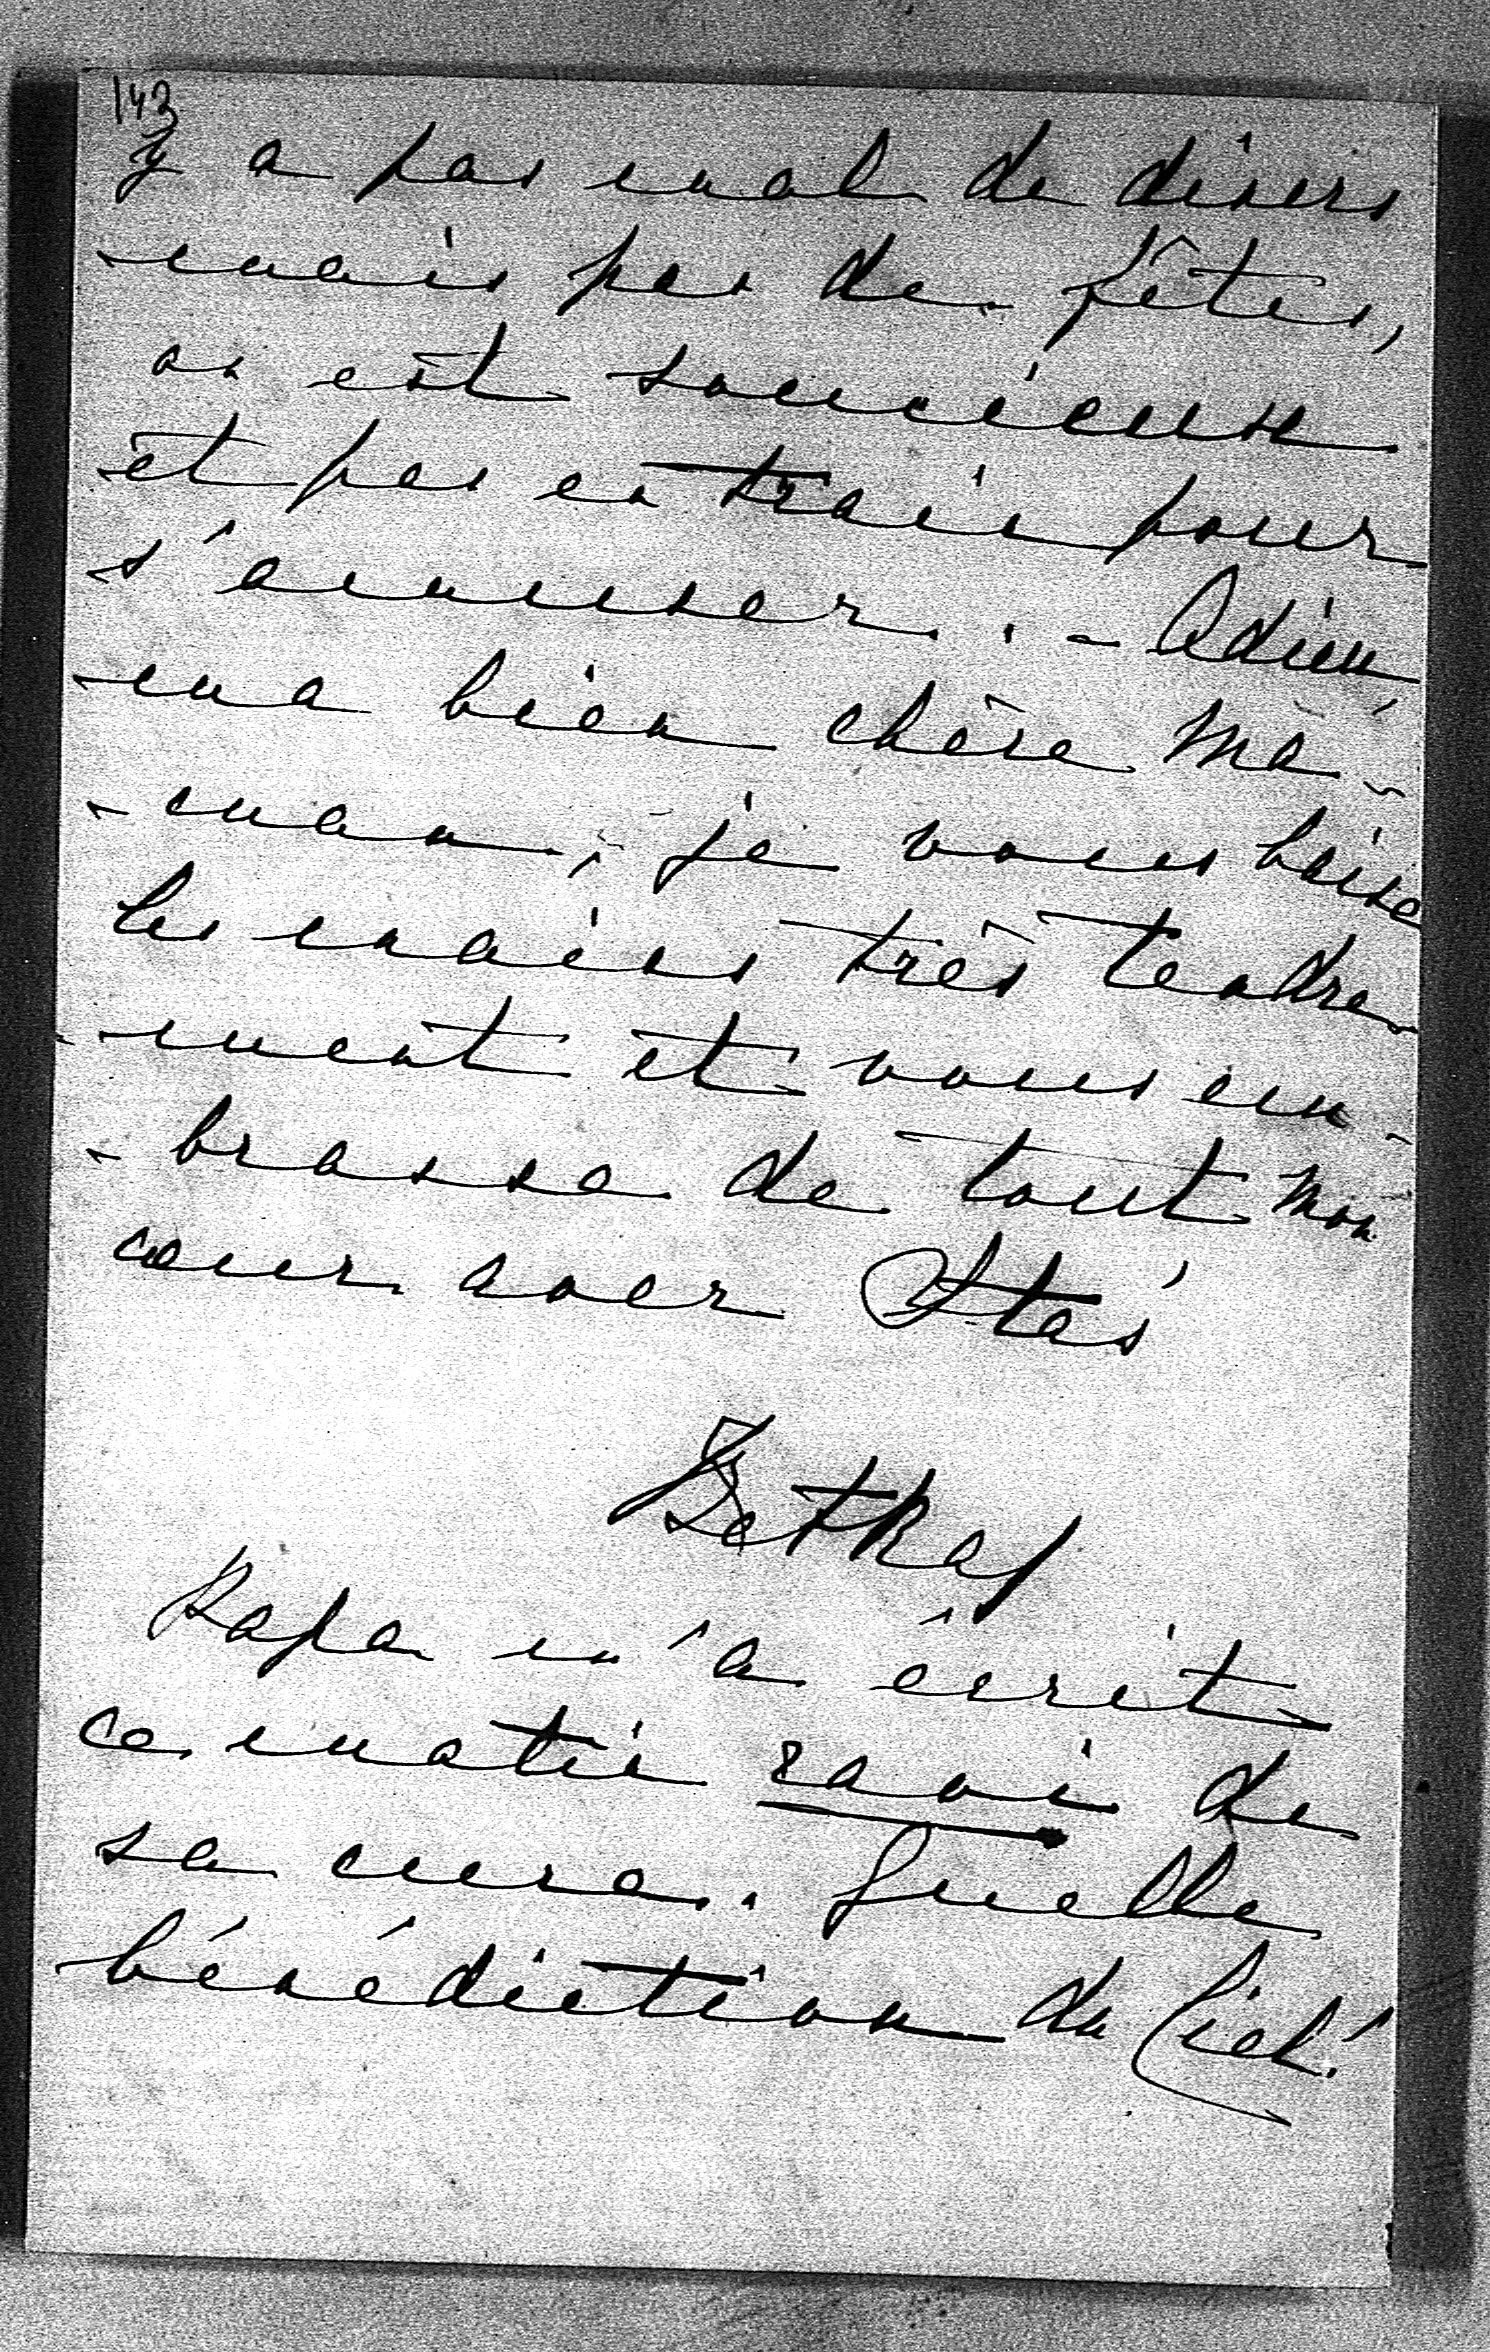 143
y a pas mal de dîners
mais pas de fêtes,
on est soucieux
et pas en train pour
s'amuser. - Adieu,
ma bien chère Ma-
-man, je vous baise
les mains très tendre-
-ment et vous em-
-brasse de tout mon
cœur avec Stas
BetRas
Papa m'a écrit
ce matin ravi de
sa cure. Quelle
bénédiction du Ciel!